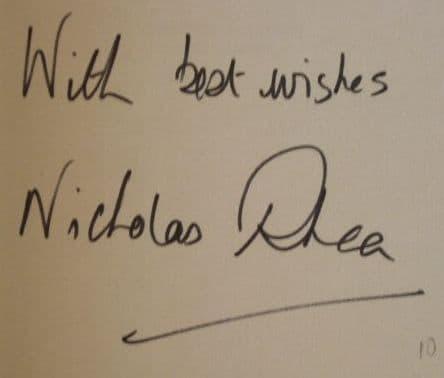 With best wishes
Nicholas Rhea
10